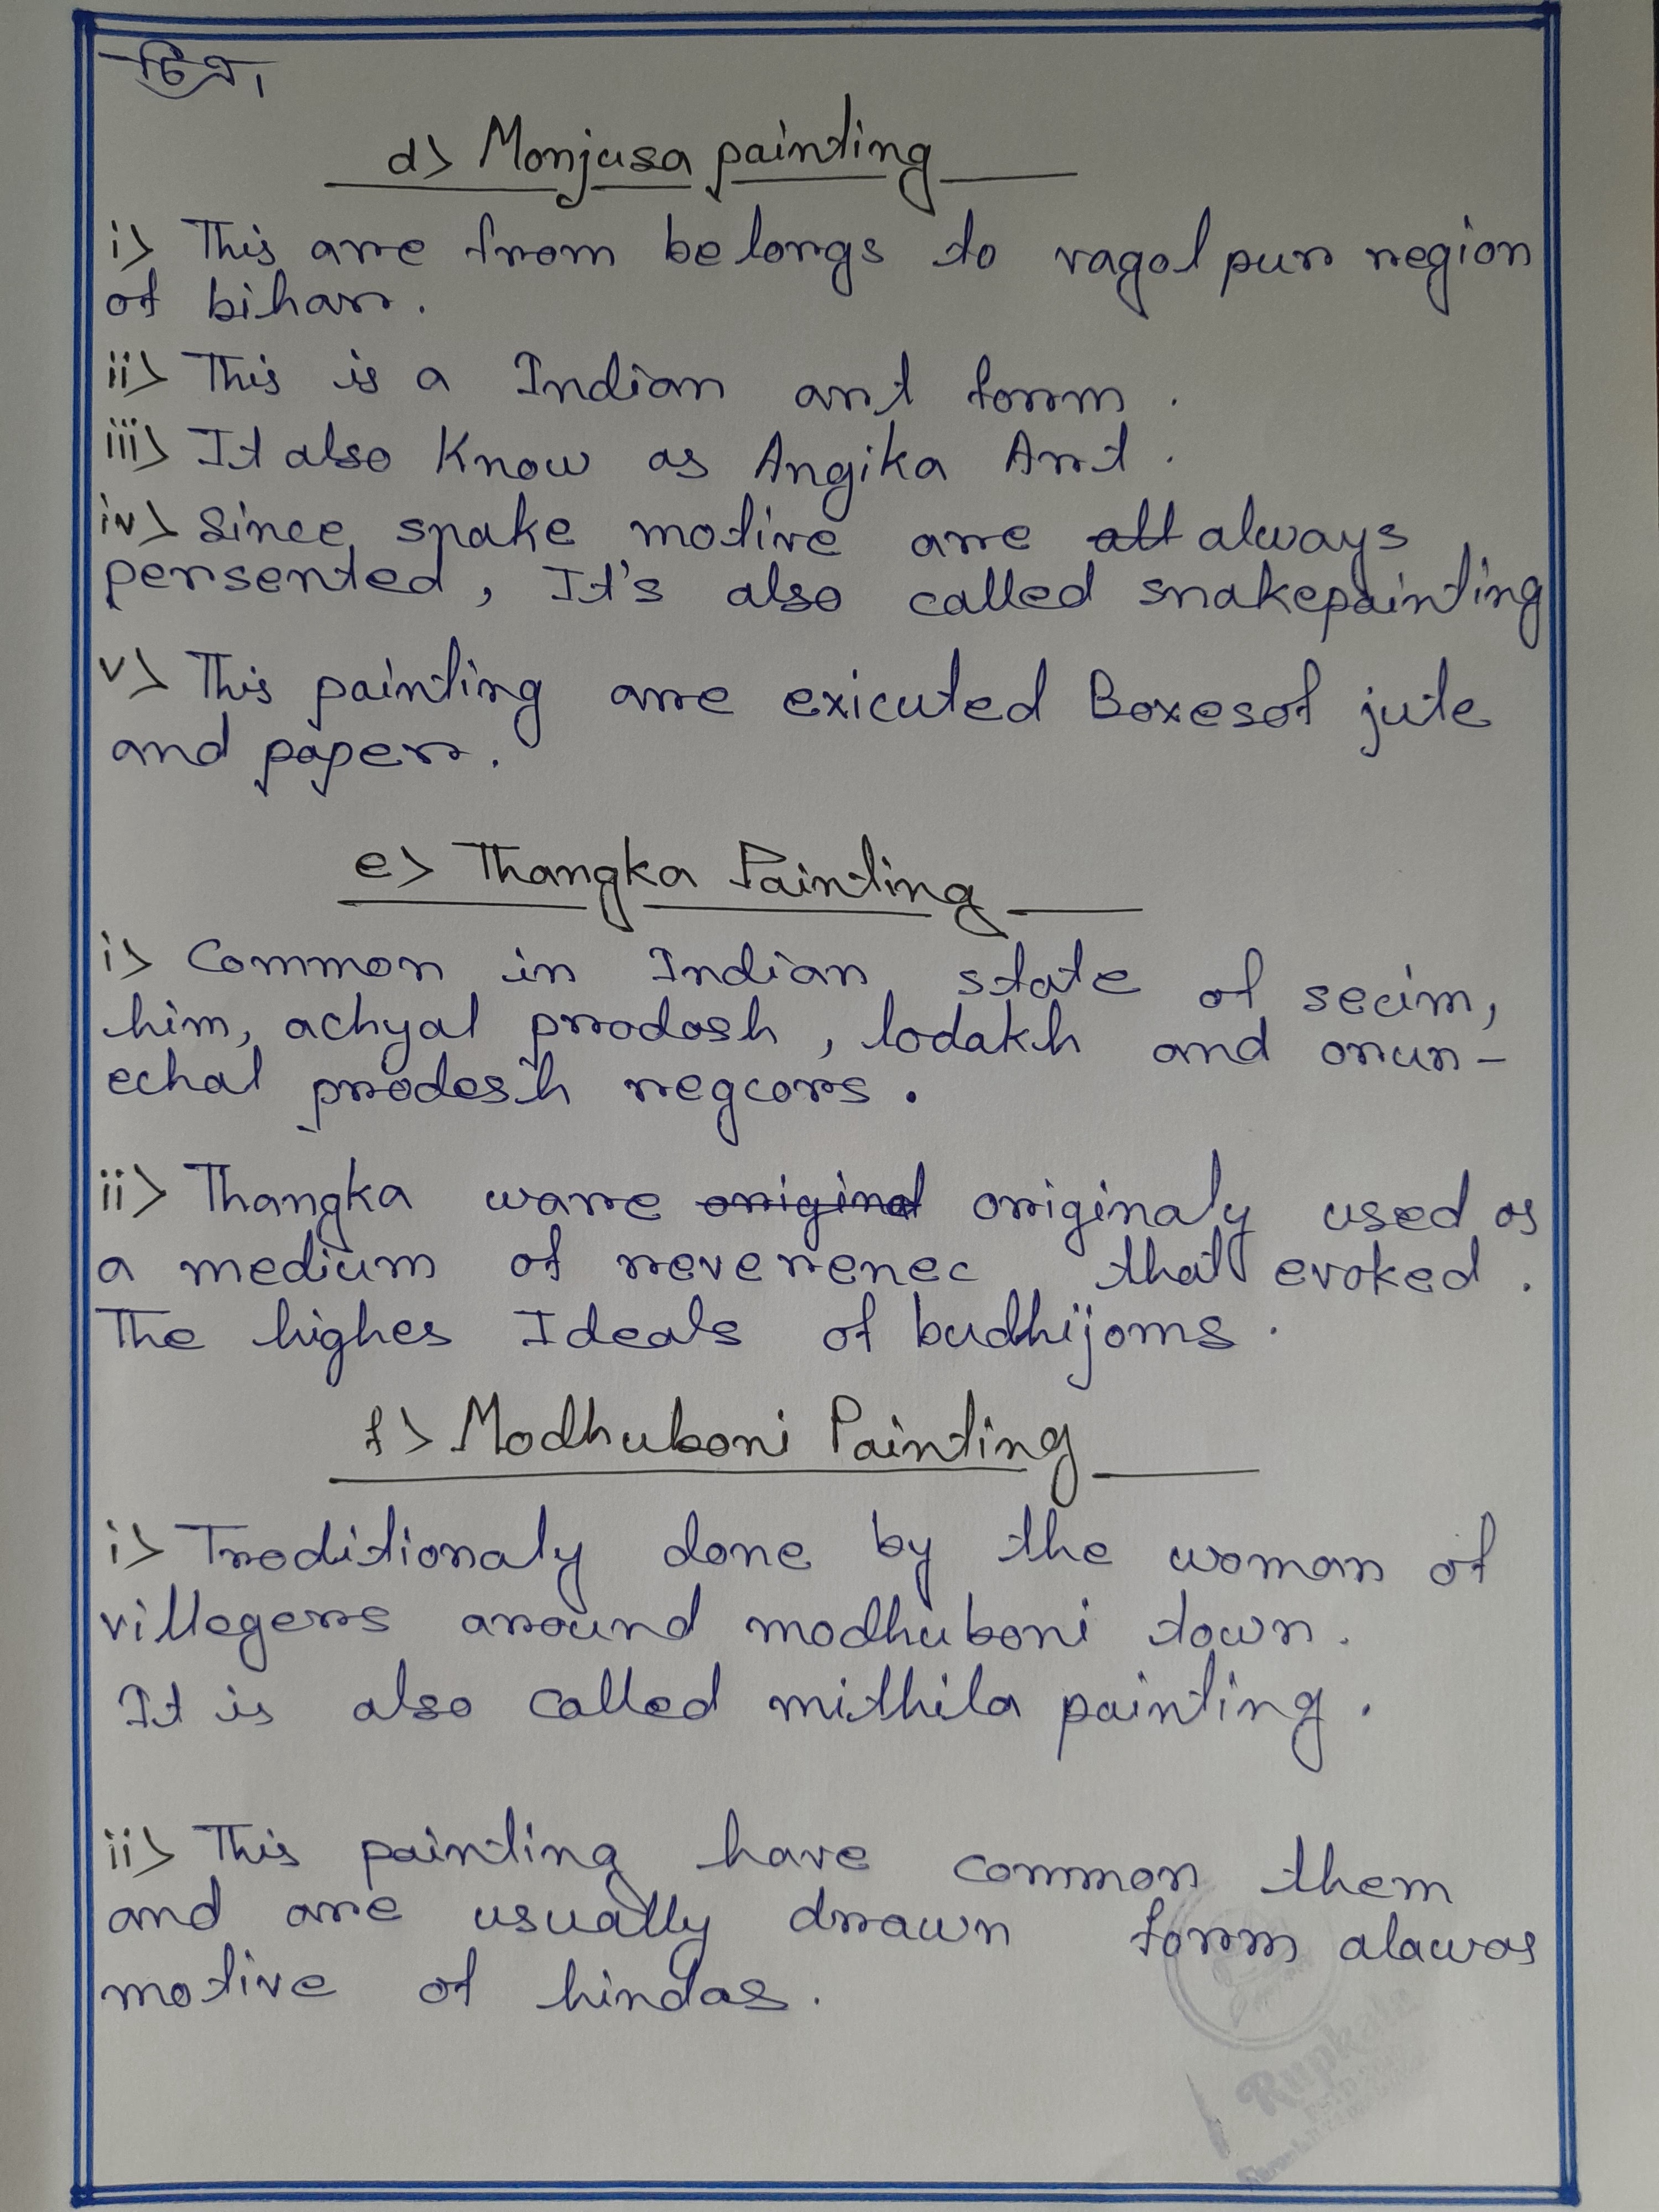 চিত্র।
d) Monjusa painting
i) This are from belongs to vagolpur region
of bihar.
ii) This is a Indian art form.
iii) It also Know as Angika Art.
iv) Since, snake motive are all always
persented, It's also called snakepainting
v) This painting are exicuted Boxesof jute
and paper.
e) Thangka Painting
i) Common in Indian state of secim,
him, achyal prodosh, lodakh and orun-
echal prodesh regcors.
ii) Thangka ware original originaly used as
a medium of reverenec that evoked.
The highes Ideals of budhijoms.
f) Modhuboni Painting
i) Troditionaly done by the woman of
villegers around modhuboni town.
It is also called mithila painting.
ii) This painting have common them
and are usually drawn form alawas
motive of hindas.
Rupkala